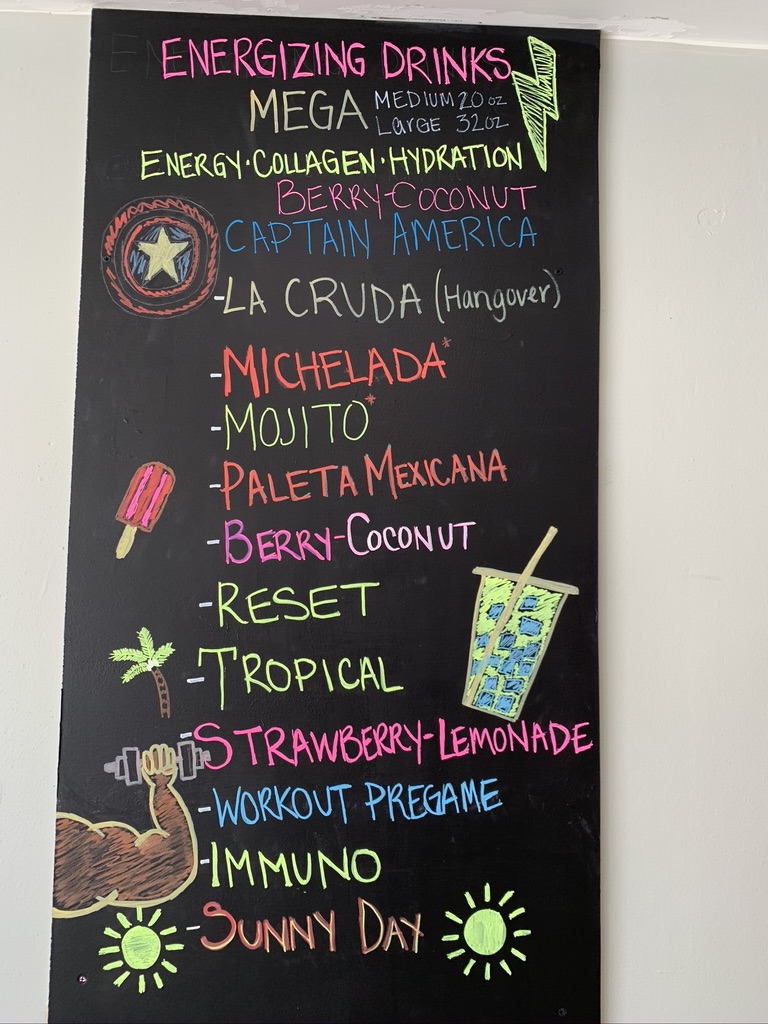 ENERGIZING DRINKS
MEGA MEDIUM 20 oz
LARGE 32oz
ENERGY·COLLAGEN·HYDRATION
BERRY-COCONUT
CAPTAIN AMERICA
-LA CRUDA (Hangover)
-MICHELADA*
-MOJITO*
-PALETA MEXICANA
-BERRY-COCONUT
-RESET
-TROPICAL
-STRAWBERRY-LEMONADE
-WORKOUT PREGAME
-IMMUNO
-SUNNY DAY